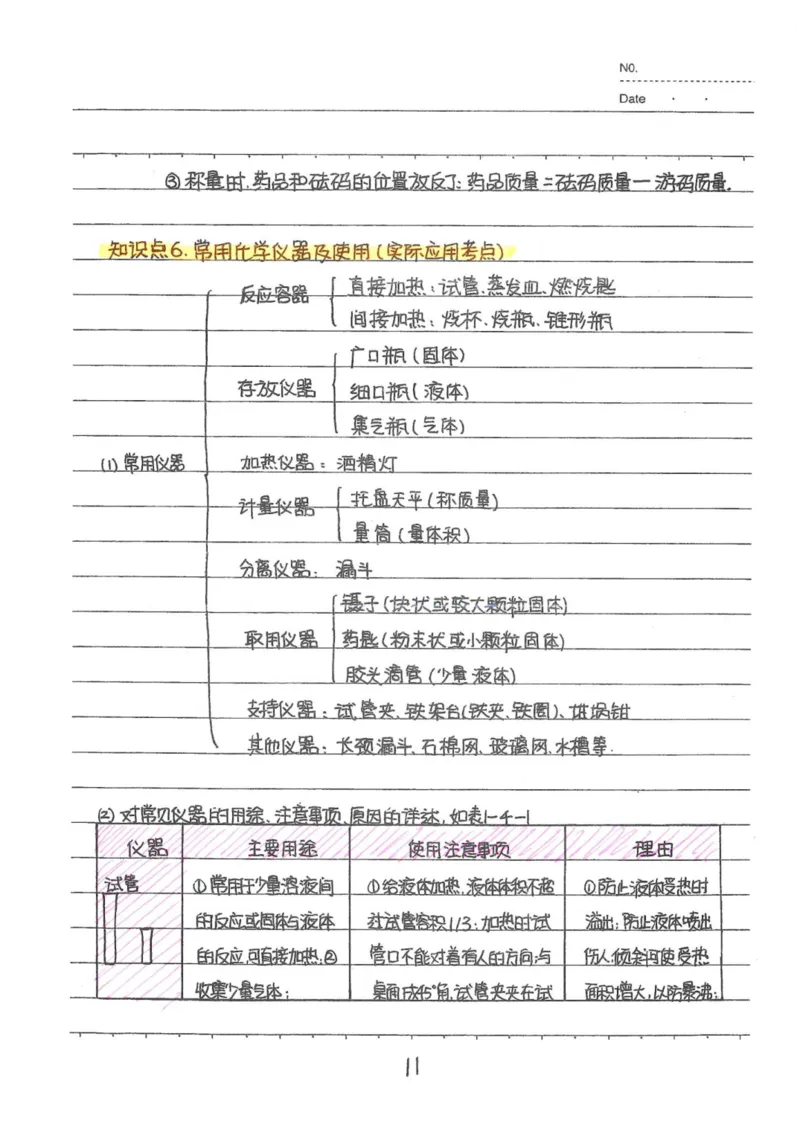 NO.
Date
③称量时.药品和砝码的位置放反了:药品质量=砝码质量一游码质量.
知识点6.常用化学仪器及使用(实际应用考点)
反应容器
直接加热:试管、蒸发皿、燃烧匙
间接加热:烧杯、烧瓶、锥形瓶
存放仪器
广口瓶(固体)
细口瓶(液体)
集气瓶(气体)
(1)常用仪器
加热仪器:酒精灯
计量仪器
托盘天平(称质量)
量筒(量体积)
分离仪器:漏斗
取用仪器
镊子(块状或较大颗粒固体)
药匙(粉末状或小颗粒固体)
胶头滴管(少量液体)
支持仪器:试管夹、铁架台(铁夹、铁圈)、坩埚钳
其他仪器:长颈漏斗、石棉网、玻璃网、水槽等.
(2)对常见仪器的用途、注意事项、原因的详述,如表1-4-1
仪器 主要用途 使用注意事项 理由
试管 ①常用于少量溶液间 ①给液体加热,液体体积不超 ①防止液体受热时
的反应或固体与液体 过试管容积1/3;加热时试 溢出;防止液体喷出
的反应,可直接加热;② 管口不能对着有人的方向;与 伤人;倾斜可使受热
收集少量气体; 桌面成45°角,试管夹夹在试 面积增大,以防暴沸;
11